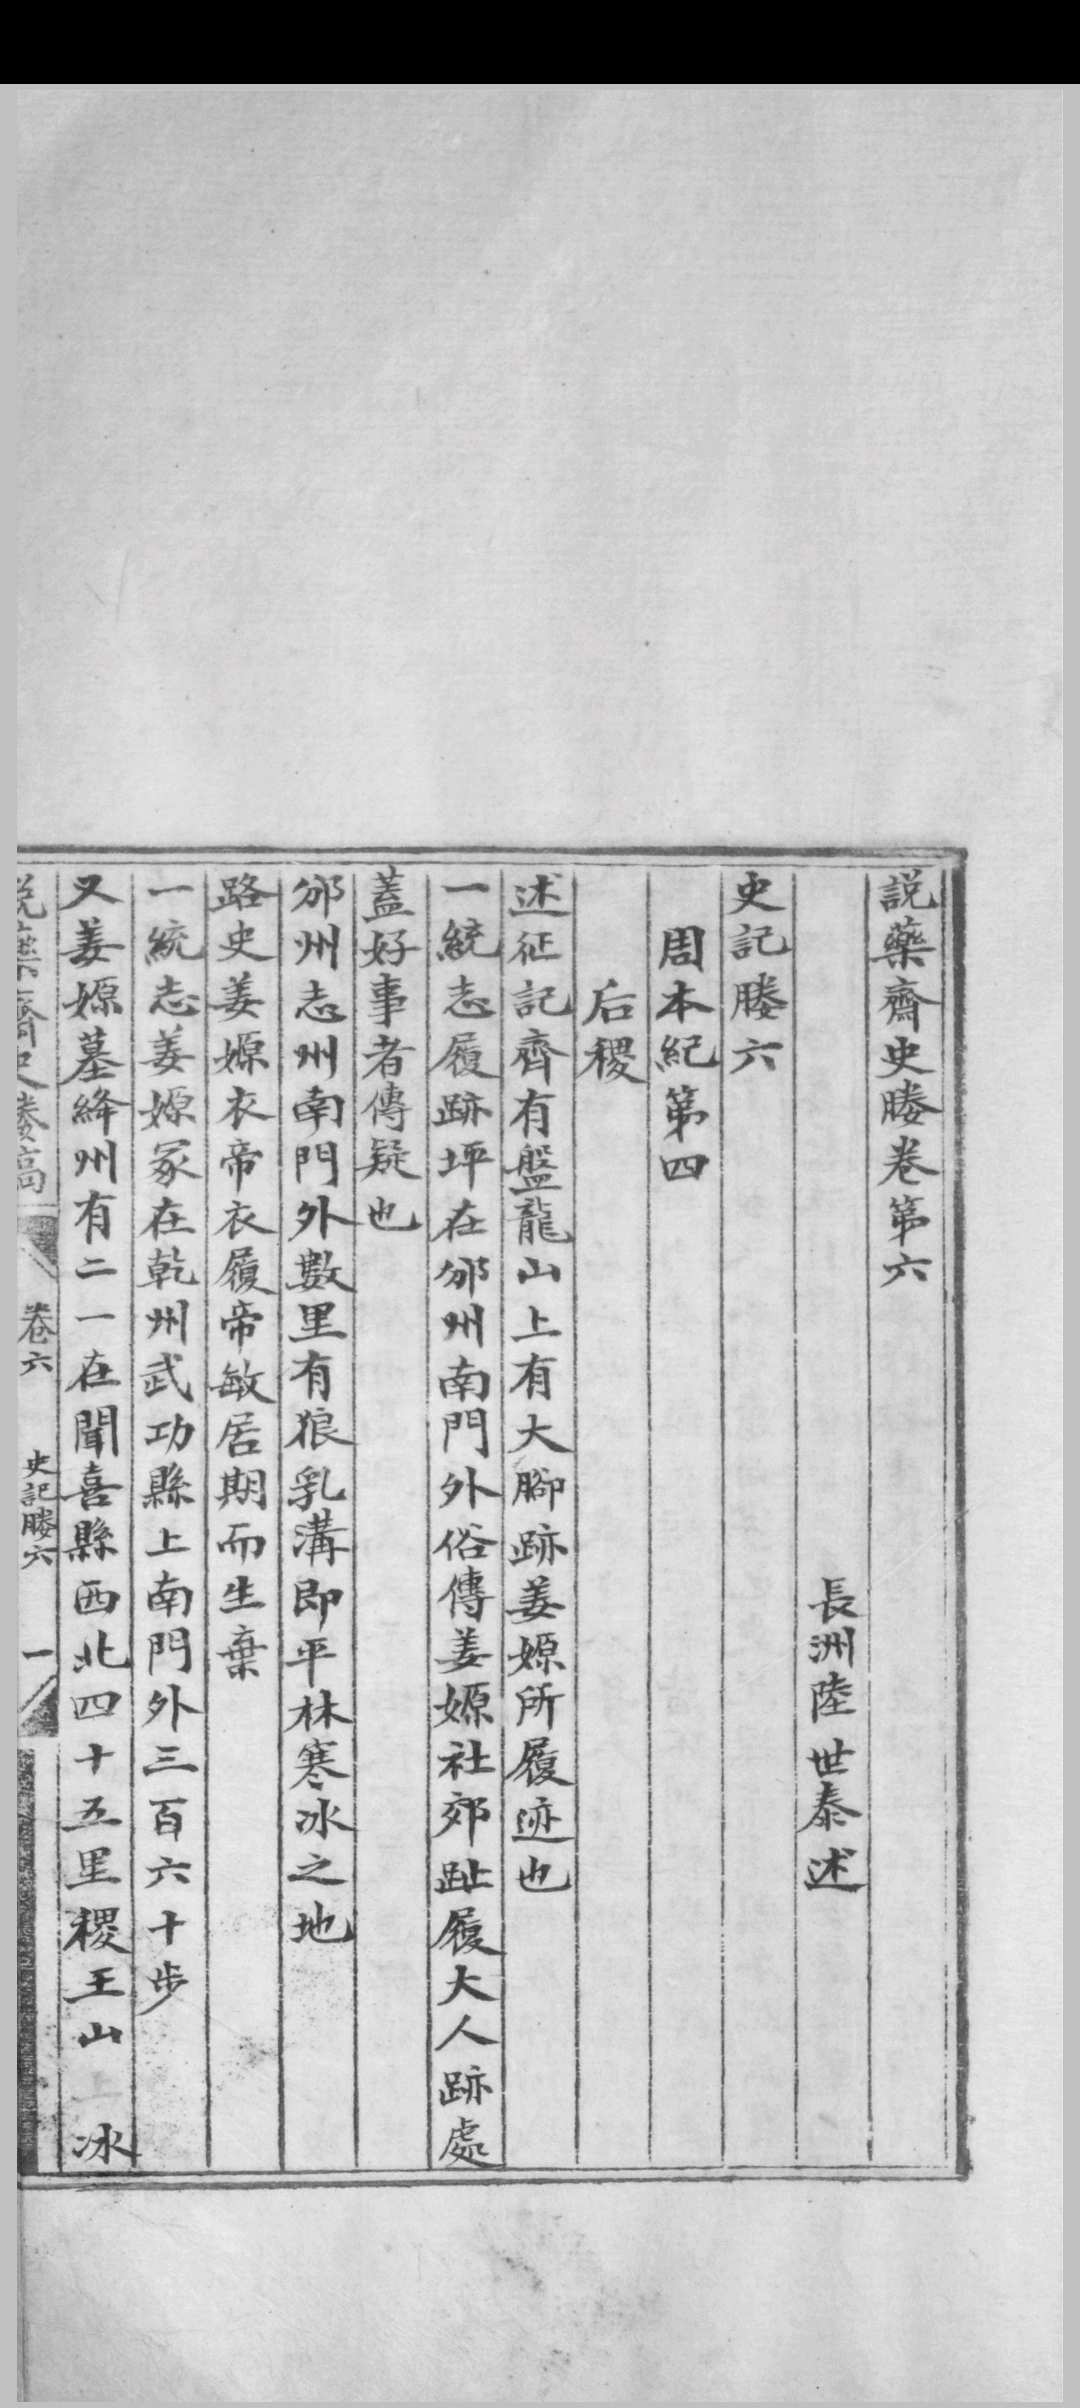 説藥齋史媵卷第六
長洲陸世泰述
史記媵六
周本紀第四
后稷
述征記齊有盤龍山上有大腳跡姜嫄所履迹也
一統志履跡坪在邠州南門外俗傳姜嫄社郊趾履大人跡處
蓋好事者傳疑也
邠州志州南門外數里有狼乳溝即平林寒冰之地
路史姜嫄衣帝衣履帝敏居期而生棄
一統志姜嫄冢在乾州武功縣上南門外三百六十步
又姜嫄墓絳州有二一在聞喜縣西北四十五里稷王山 冰
説藥齋史媵高
卷六
史記媵六
一